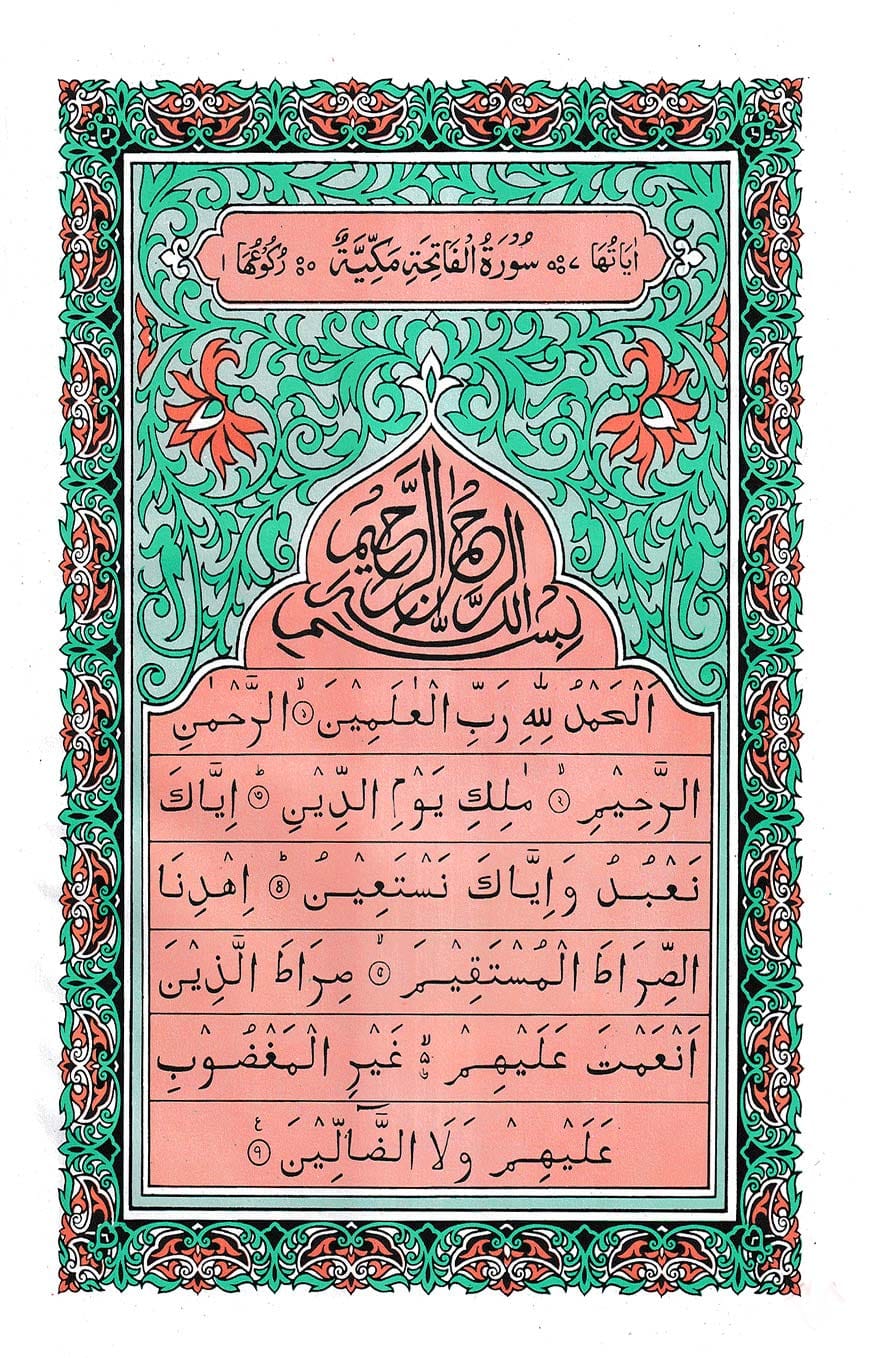 اٰيَاتُهَا ٧ سُوْرَةُ الْفَاتِحَةِ مَكِّيَّةٌ رُكُوْعُهَا ١
بِسْمِ اللّٰهِ الرَّحْمٰنِ الرَّحِيْمِ
اَلْحَمْدُ لِلّٰهِ رَبِّ الْعٰلَمِيْنَۙ ١ الرَّحْمٰنِ
الرَّحِيْمِۙ ٢ مٰلِكِ يَوْمِ الدِّيْنِؕ ٣ اِيَّاكَ
نَعْبُدُ وَاِيَّاكَ نَسْتَعِيْنُؕ ۴ اِهْدِنَا
الصِّرَاطَ الْمُسْتَقِيْمَۙ ۵ صِرَاطَ الَّذِيْنَ
اَنْعَمْتَ عَلَيْهِمْۙ ۵ غَيْرِ الْمَغْضُوْبِ
عَلَيْهِمْ وَلَا الضَّآلِّيْنَ